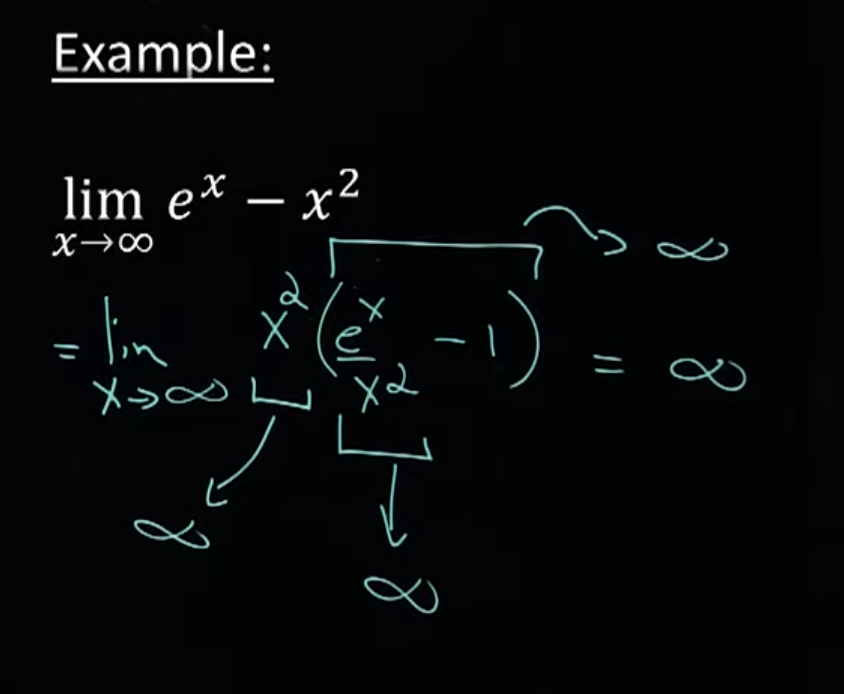 Example:
lim e^x − x^2
x→∞
→ ∞
= lim x^2 (e^x/x^2 − 1) = ∞
x→∞
∞
∞